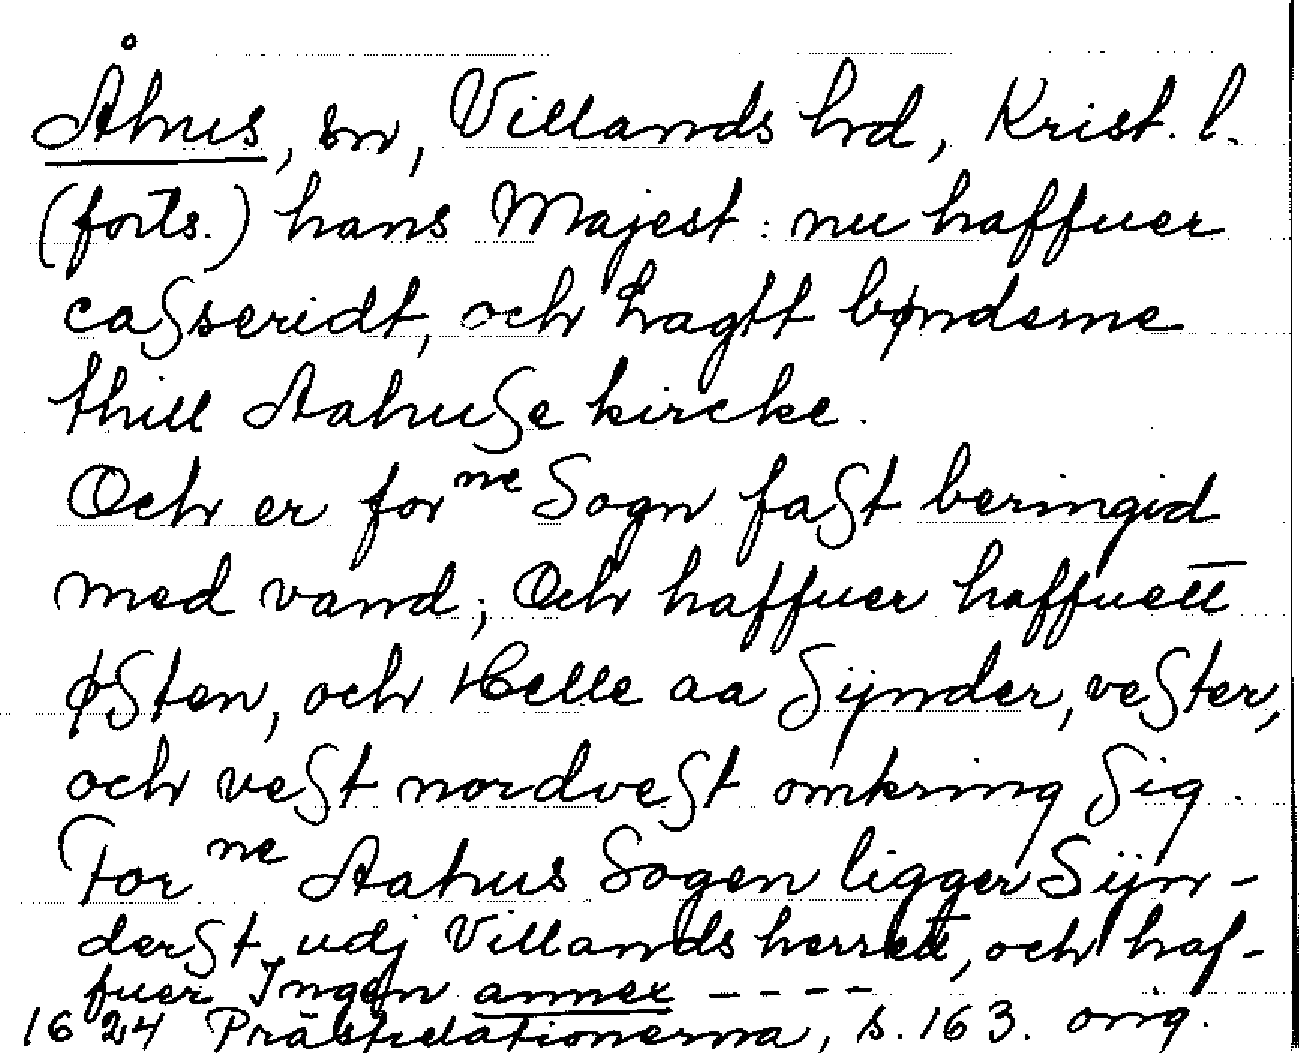 Åhus, sn, Villands hd, Krist. l.
(forts.) hans Majest: nu haffuer
casseridt, och lagtt bønderne
thill Aahuse kircke.
Och er for ne Sogn fast beringid
med vand; Och haffuer haffuett
østen, och Helle aa Sÿnder, vester,
och vest nordvest omkring sig.
For ne Aahus Sogen ligger Sÿn-
derst udj Villands herrett, och haf-
fuer Ingen annex ----
1624 Prästrelationerna, s. 163. orig.